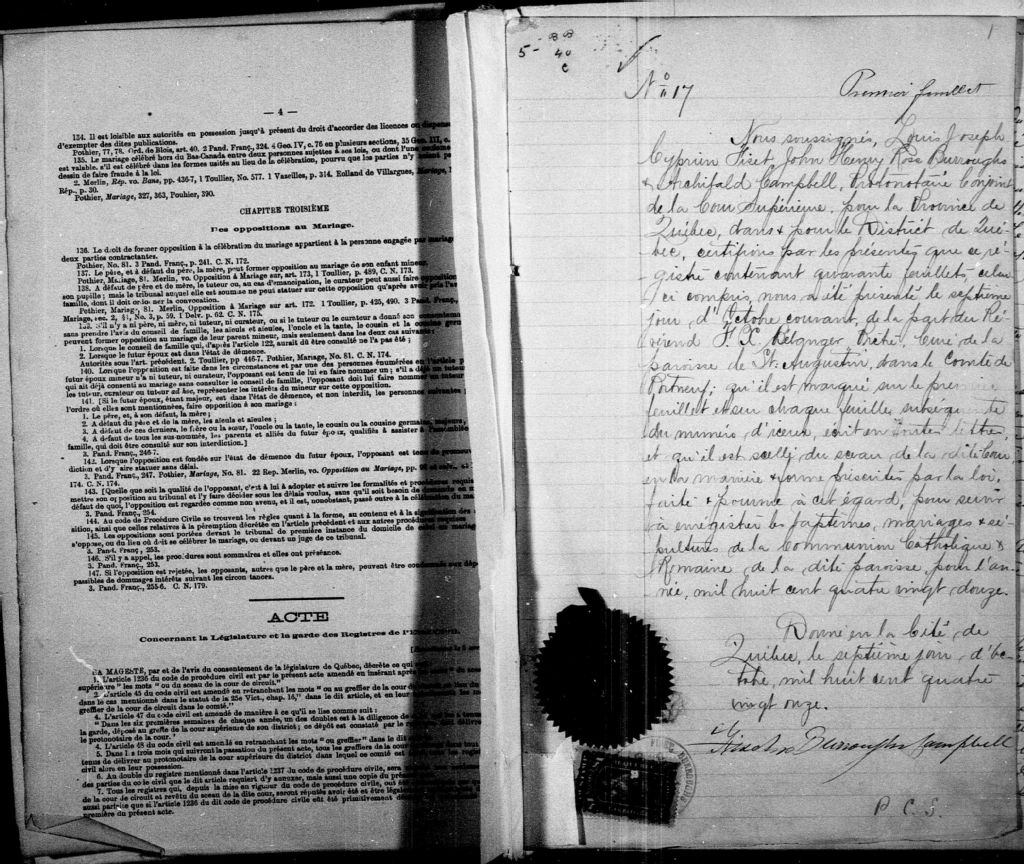 — 4 —
134. Il est loisible aux autorités en possession jusqu'à présent du droit d'accorder des licences ou dispenses
d'exempter des dites publications.
Pothier, 77, 78. Ord. de Blois, art. 40. 2 Pand. Franç., 324. 4 Geo. IV, c. 76 en plusieurs sections, 35 Geo. III, c.
135. Le mariage célébré hors du Bas-Canada entre deux personnes sujettes à ses lois, ou dont l'une
est valable, s'il est célébré dans les formes usitées au lieu de la célébration, pourvu que les parties n'y
dessin de faire fraude à la loi.
2. Merlin, Rep. vo. Bans, pp. 436-7, 1 Toullier, No. 577. 1 Vazeilles, p. 314. Rolland de Villargues, Mariage,
Rép., p. 30.
Pothier, Mariage, 327, 363, Pouhier, 390.
CHAPITRE TROISIÈME
Des oppositions au Mariage.
136. Le droit de former opposition à la célébration du mariage appartient à la personne engagée par mariage
deux parties contractantes.
Pothier, No. 81. 3 Pand. Franç., p. 241. C. N. 172.
137. Le père, et à défaut du père, la mère, peut former opposition au mariage de son enfant mineur.
Pothier, Mariage, 81. Merlin, vo. Opposition à Mariage sur, art. 173, 1 Toullier, p. 489, C. N. 173.
138. A défaut de père et de mère, le tuteur ou, au cas d'émancipation, le curateur peut aussi faire opposition
son pupille; mais le tribunal auquel elle est soumise ne peut statuer sur cette opposition qu'après avoir pris l'avis
famille, dont il doit ordonner la convocation.
Pothier, Mariage, 81. Merlin, Opposition à Mariage sur art. 172. 1 Toullier, p. 425, 490. 3 Pand. Franç.,
Mariage, sec. 2, §1, No. 3, p. 59. 1 Delv. p. 62. C. N. 175.
139. S'il n'y a ni père, ni mère, ni tuteur, ni curateur, ou si le tuteur ou le curateur a donné son consentement
sans prendre l'avis du conseil de famille, les aïeuls et aïeules, l'oncle et la tante, le cousin et la cousine germains
peuvent former opposition au mariage de leur parent mineur, mais seulement dans les deux cas suivants:
1. Lorsque le conseil de famille qui, d'après l'article 122, aurait dû être consulté ne l'a pas été;
2. Lorsque le futur époux est dans l'état de démence.
Autorités sous l'art. précédent. 2. Toullier, pp 446-7. Pothier, Mariage, No. 81. C. N. 174.
140. Lorsque l'opposition est faite dans les circonstances et par une des personnes énumérées en l'article
futur époux mineur n'a ni tuteur, ni curateur, l'opposant est tenu de lui en faire nommer un; s'il a déjà un tuteur
qui ait déjà consenti au mariage sans consulter le conseil de famille, l'opposant doit lui faire nommer un tuteur
les tuteur, curateur ou tuteur ad hoc, représenter les intérêts du mineur sur cette opposition.
141. [Si le futur époux, étant majeur, est dans l'état de démence, et non interdit, les personnes suivantes
l'ordre où elles sont mentionnées, faire opposition à son mariage:
1. Le père, et, à son défaut, la mère;
2. A défaut du père et de la mère, les aïeuls et aïeules;
3. A défaut de ces derniers, le frère ou la sœur, l'oncle ou la tante, le cousin ou la cousine germains, majeurs,
4. A défaut de tous les sus-nommés, les parents et alliés du futur époux, qualifiés à assister à l'assemblée
famille, qui doit être consulté sur son interdiction.]
3. Pand. Franç., 246-7.
142. Lorsque l'opposition est fondée sur l'état de démence du futur époux, l'opposant est tenu de
diction et d'y faire statuer sans délai.
3. Pand. Franç., 247. Pothier, Mariage, No. 81. 22 Rep. Merlin, vo. Opposition au Mariage, pp.
174. C. N. 174.
143. [Quelle que soit la qualité de l'opposant, c'est à lui à adopter et suivre les formalités et procédures requises
mettre son opposition au tribunal et l'y faire décider sous les délais voulus, sans qu'il soit besoin de
défaut de quoi, l'opposition est regardée comme non avenu, et il est, nonobstant, passé outre à la célébration du
3. Pand. Franç., 254.
144. Au code de Procédure Civile se trouvent les règles quant à la forme, au contenu et à la signification
sition, ainsi que celles relatives à la péremption décrétée en l'article précédent et aux autres procédures
145. Les oppositions sont portées devant le tribunal de première instance du domicile de celui au mariage
s'oppose, ou du lieu où doit se célébrer le mariage, ou devant un juge de ce tribunal.
3. Pand. Franç., 253.
146. S'il y a appel, les procédures sont sommaires et elles ont préséance.
3. Pand. Franç., 253.
147. Si l'opposition est rejetée, les opposants, autres que le père et la mère, peuvent être condamnés aux dépens
passibles de dommages intérêts suivant les circonstances.
3. Pand. Franç., 255-6. C. N. 179.
ACTE
Concernant la Législature et la garde des Registres de l'Etat Civil.
SA MAGESTÉ, par et de l'avis du consentement de la législature de Québec, décrète ce qui
1. L'article 1236 du code de procédure civil est par le présent acte amendé en insérant après
supérieure" les mots "ou du sceau de la cour de circuit."
2. L'article 45 du code civil est amendé en retranchant les mots "ou au greffier de la cour de
dans le cas mentionné dans le statut de la 25e Vict., chap. 16," dans le dit article, et en leur
greffier de la cour de circuit dans le comté."
4. L'article 47 du code civil est amendé de manière à ce qu'il se lise comme suit:
"Dans les six premières semaines de chaque année, un des doubles est à la diligence de
la garde, déposé au greffe de la cour supérieure de son district; ce dépôt est constaté par le
le protonotaire de la cour."
4. L'article 48 du code civil est amendé en retranchant les mots "ou greffier" dans le dit
5. Dans les trois mois qui suivront la passation du présent acte, tous les greffiers de la cour
tenus de délivrer au protonotaire de la cour supérieure du district dans lequel ce comté est
civil alors en leur possession.
6. Au double du registre mentionné dans l'article 1237 du code de procédure civile, sera
des parties du code civil que le dit article requiert d'y annexer, mais aussi une copie du présent
7. Tous les registres qui, depuis la mise en vigueur du code de procédure civile, ont été
de la cour de circuit et revêtu du sceau de la dite cour, seront réputés avoir été et être légalement
aussi parfaite que si l'article 1236 du dit code de procédure civile eût été primitivement
première du présent acte.
1
5-
40
c
No 17
Premier feuillet
Nous soussignés, Louis Joseph
Cyprien Fiset, John Henry Ross Burroughs
& Archibald Campbell, Protonotaire Conjoint
de la Cour Supérieure, pour la Province de
Québec, dans & pour le District de Qué-
bec, certifions par les présentes que ce ré-
gistre contenant quarante feuillets celui
ci compris, nous a été présenté le septième
jour d'Octobre courant, de la part du Ré-
vérend F. X. Bélanger, Prêtre, Curé de la
paroisse de St. Augustin, dans le Comté de
Portneuf; qu'il est marqué sur le premier
feuillet et sur chaque feuillet subséquente
du numéro d'iceux, écrit en toutes lettres
et qu'il est scellé du sceau de la dite Cour
en la manière & forme prescrites par la loi,
faite & pourvue à cet égard, pour servir
à enrégistrer les baptêmes, mariages & sé-
pultures de la Communion Catholique &
Romaine de la dite paroisse, pour l'an-
née, mil huit cent quatre vingt douze.
Donné en la Cité de
Québec, le septième jour d'Oc-
tobre, mil huit cent quatre
vingt onze.
Fiset Burroughs Campbell
P. C. S.